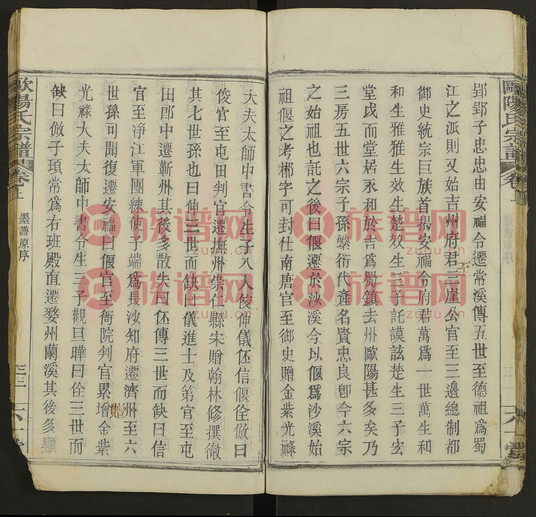 郢郢子忠忠由安福令遷常溪傳五世至德祖爲蜀
江之派則又始吉州府君三崖公官至三邊總制都
御史統宗巨族首推安福令府君萬爲一世萬生和
和生雅雅生效生楚效生三子託謨詃楚生三子宏
堂戍而堂居永和於吉爲歷鎮去州歐陽甚多矣乃
三房五世六宗子孫繁衍代產名賢忠良卽今六宗
之始祖也託之後曰偃遷於沙溪今以偃爲沙溪始
祖偃之考郴字可封仕南唐官至御史贈金葉光祿
大夫太師中書令生子八人俊伸儀伾信偃佺俶曰
俊官至屯田判官遷撫州崇仁縣宋贈翰林修撰徹
其七世孫也曰伸三世而缺曰儀進士及第官至屯
田郎中遷蘄州其後多散失曰伾傳三世而缺曰信
官至淨江軍團練使子端爲長沙知府遷濟州至六
世孫可開復遷安福曰偃官至衙院判官累增金紫
光祿大夫太師中書令生三子觀旦曄曰佺三世而
缺曰俶子頊常爲右班殿直遷婺州蘭溪其後多顯
歐陽氏宗譜
卷
歐陽氏宗譜
卷
墨譜原序
族谱网
zupu.cn
族谱网
zupu.cn
族谱网
zupu.cn
族谱网
zupu.cn